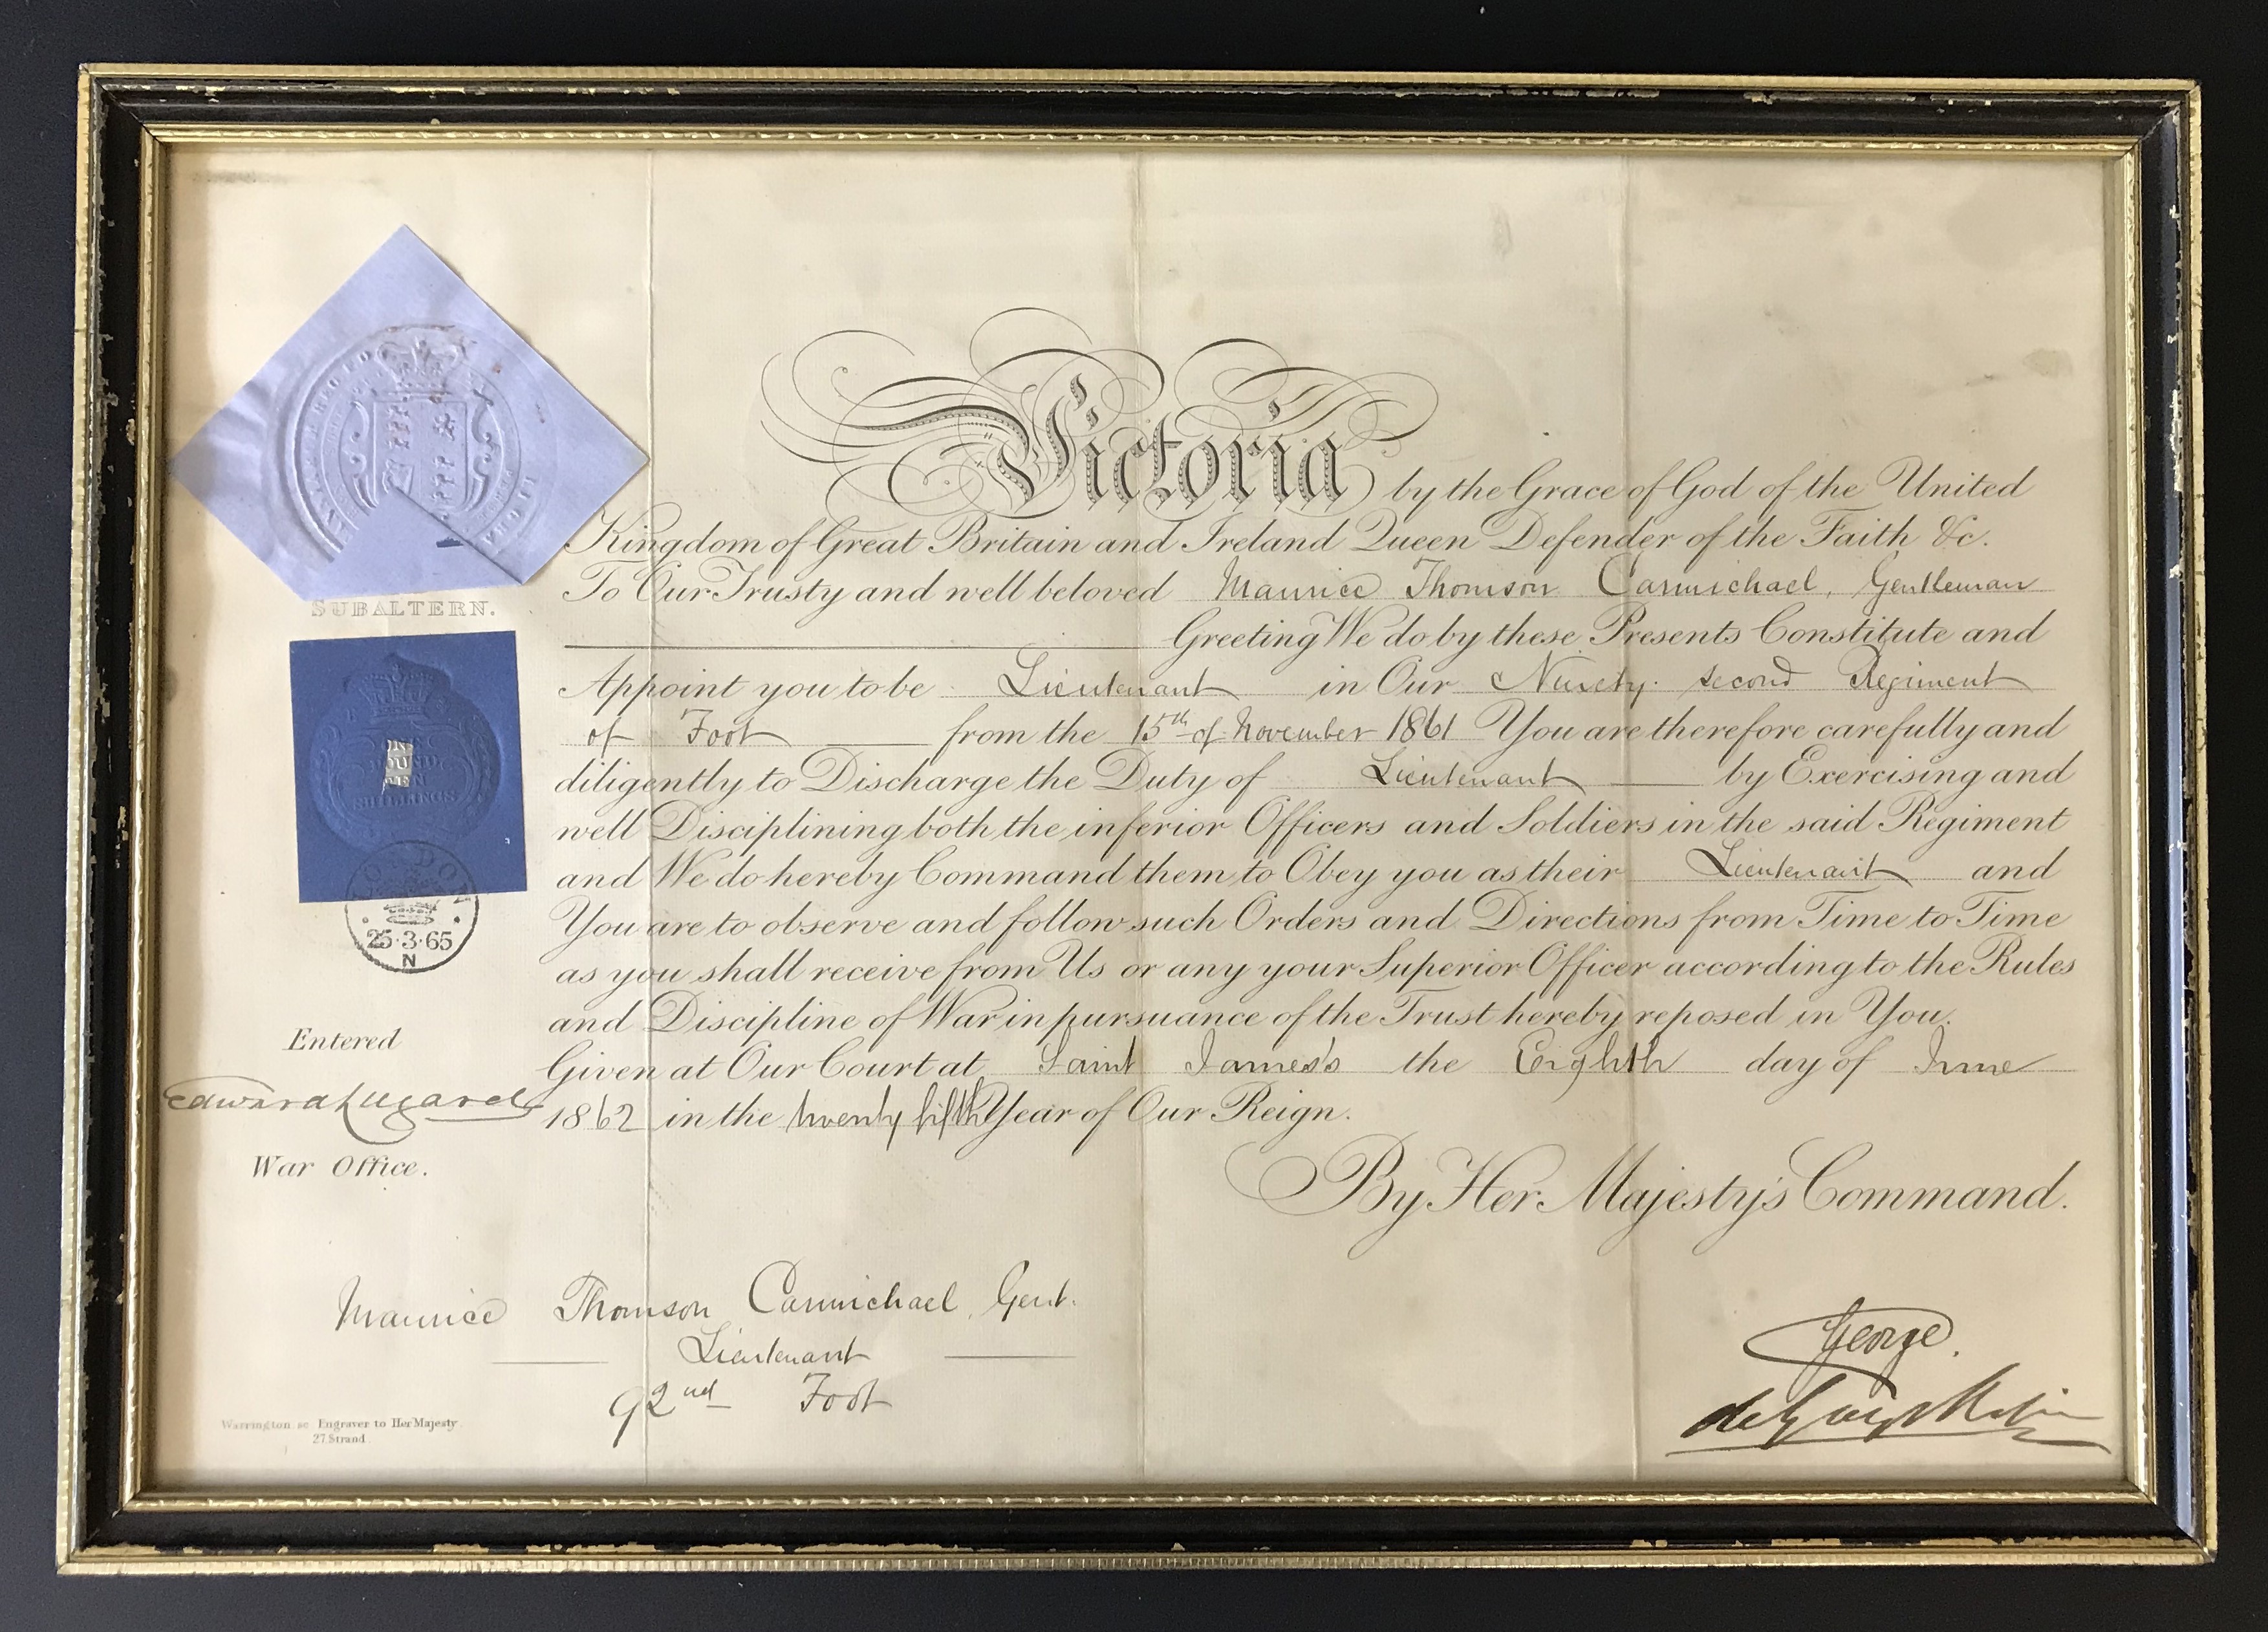 Victoria by the Grace of God of the United
Kingdom of Great Britain and Ireland Queen Defender of the Faith &c.
To Our Trusty and well beloved Maurice Thomson Carmichael, Gentleman
Greeting We do by these Presents Constitute and
Appoint you to be Lieutenant in Our Ninety second Regiment
of Foot from the 15th of November 1861 You are therefore carefully and
diligently to Discharge the Duty of Lieutenant by Exercising and
well Disciplining both the inferior Officers and Soldiers in the said Regiment
and We do hereby Command them to Obey you as their Lieutenant and
You are to observe and follow such Orders and Directions from Time to Time
as you shall receive from Us or any your Superior Officer according to the Rules
and Discipline of War in pursuance of the Trust hereby reposed in You.
Given at Our Court at Saint James's the Eighth day of June
1862 in the twenty fifth Year of Our Reign.
By Her Majesty's Command.
George.
de Grey & Ripon
SUBALTERN.
SHILLINGS
LONDON
25·3·65
N
Entered
Edward Lugard
War Office.
Maurice Thomson Carmichael, Gent.
Lieutenant
92nd Foot
Warrington sc Engraver to Her Majesty
27 Strand